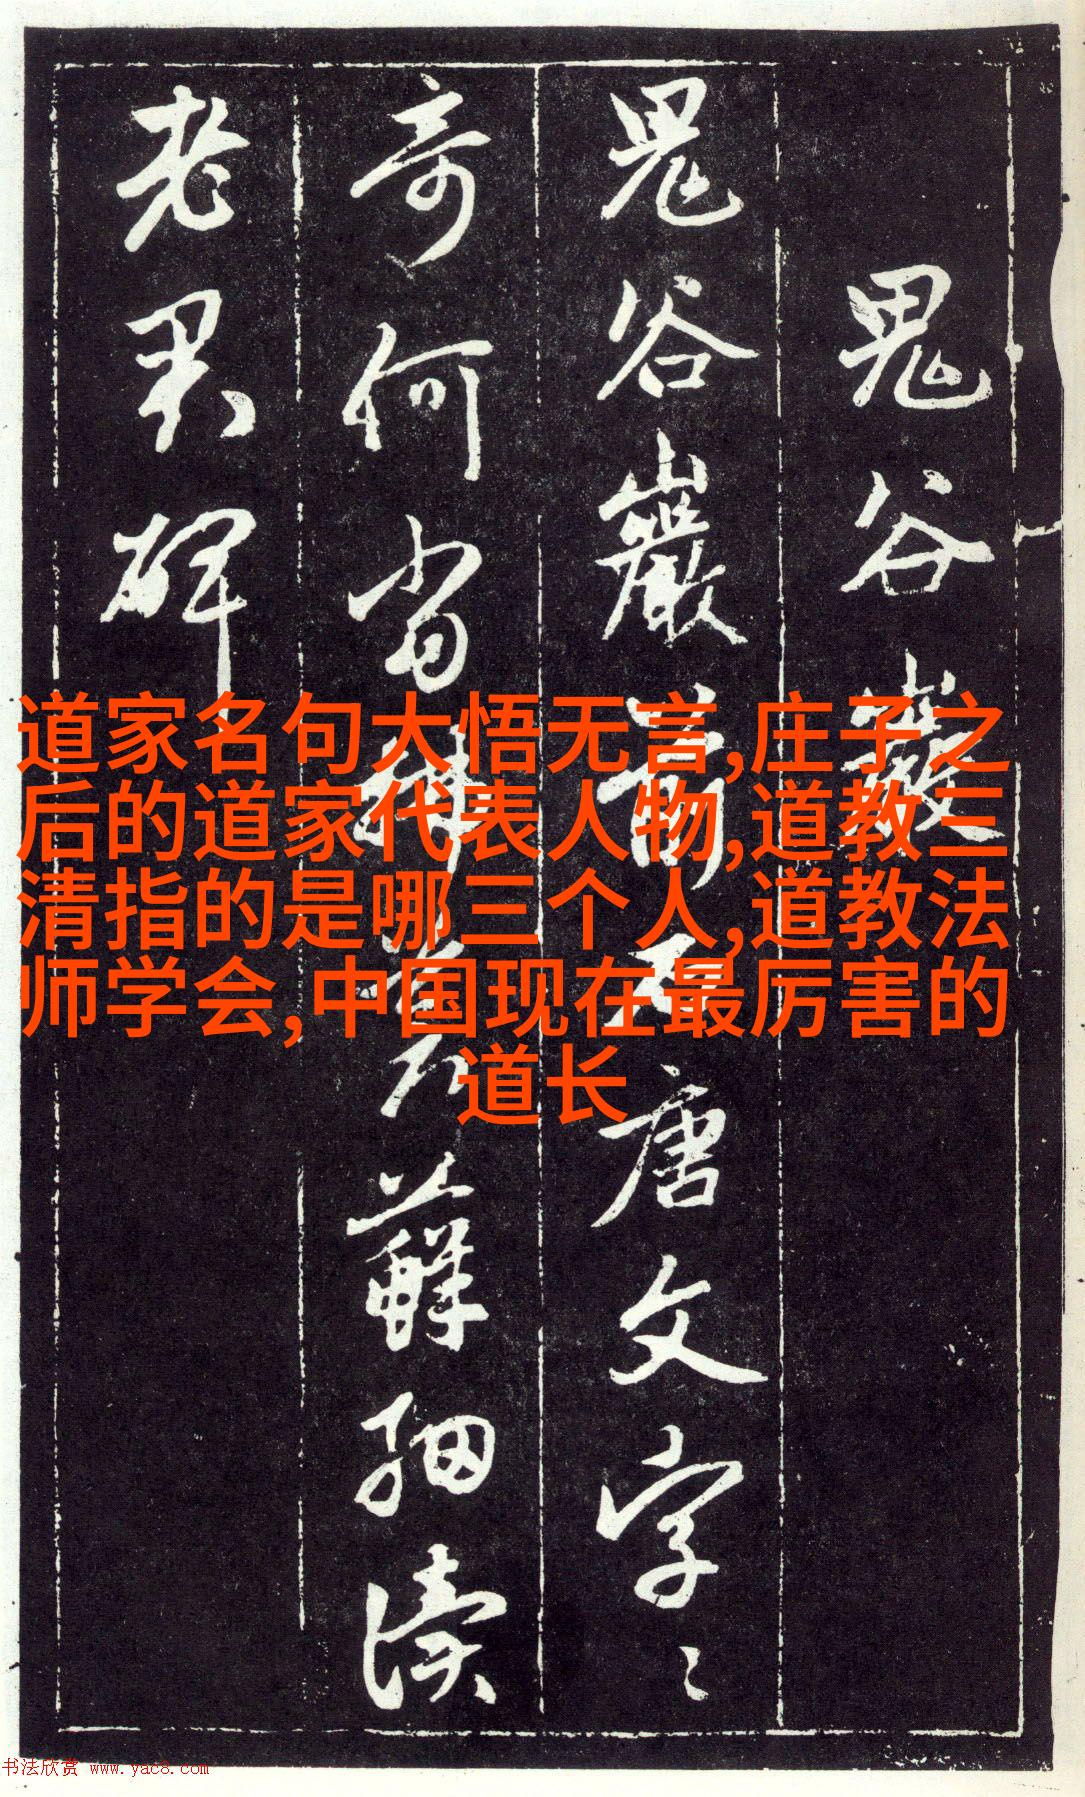 鬼谷巖
鬼谷巖前唐文字〻
奇何當蘚細讀
老君碑
道家名句大悟无言,庄子之
后的道家代表人物,道教三
清指的是哪三个人,道教法
师学会,中国现在最厉害的
道长
书法欣赏 www.yac8.com